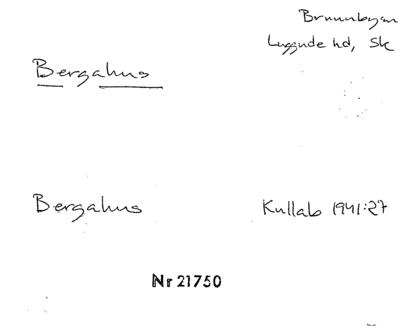 Brunnbysn
Luggude hd, Sk
Bergahus
Bergahus Kullab 1941:27
Nr 21750